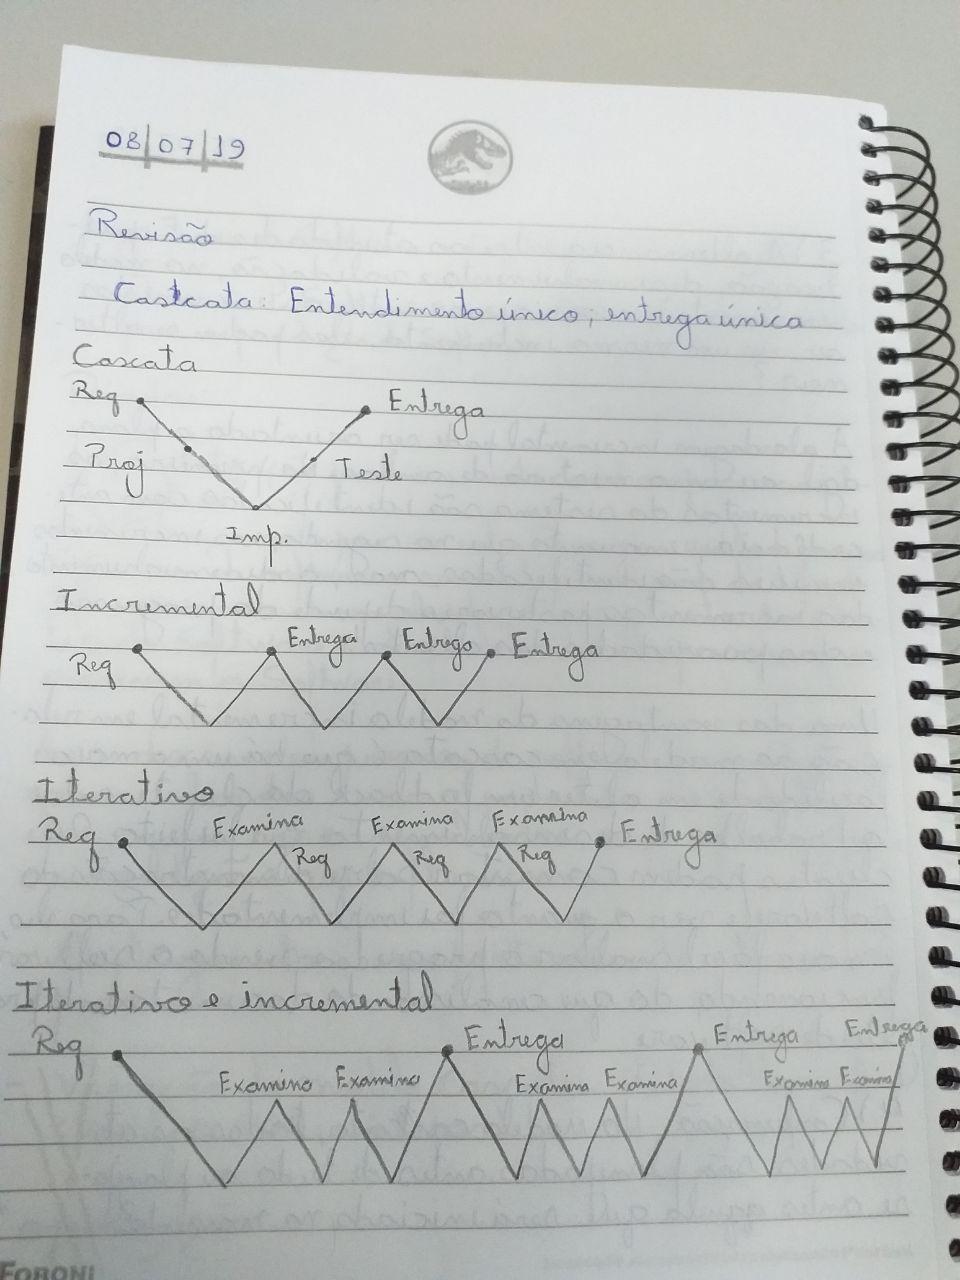 08/07/19
Revisão
Castcata: Entendimento único; entrega única
Cascata
Req Entrega
Proj Teste
Imp.
Incremental
Req Entrega Entrega Entrega
Iterativo
Examina Examina Examina
Req Req Req Req Entrega
Iterativo e incremental
Req Entrega Entrega Entrega
Examina Examina Examina Examina Examina Examina
FORONI